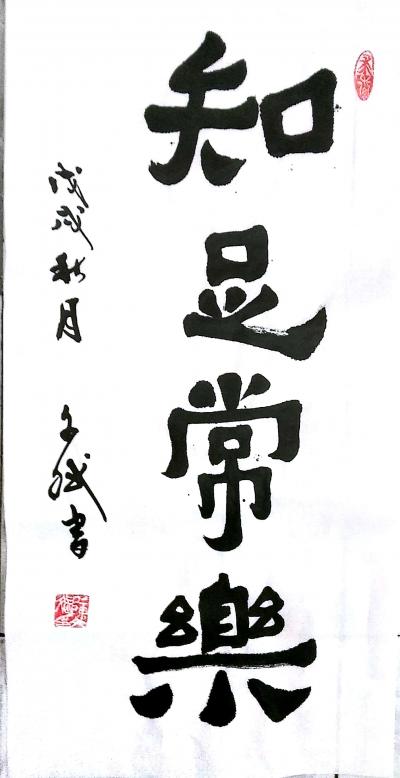 知足常樂
戊戌秋月 書